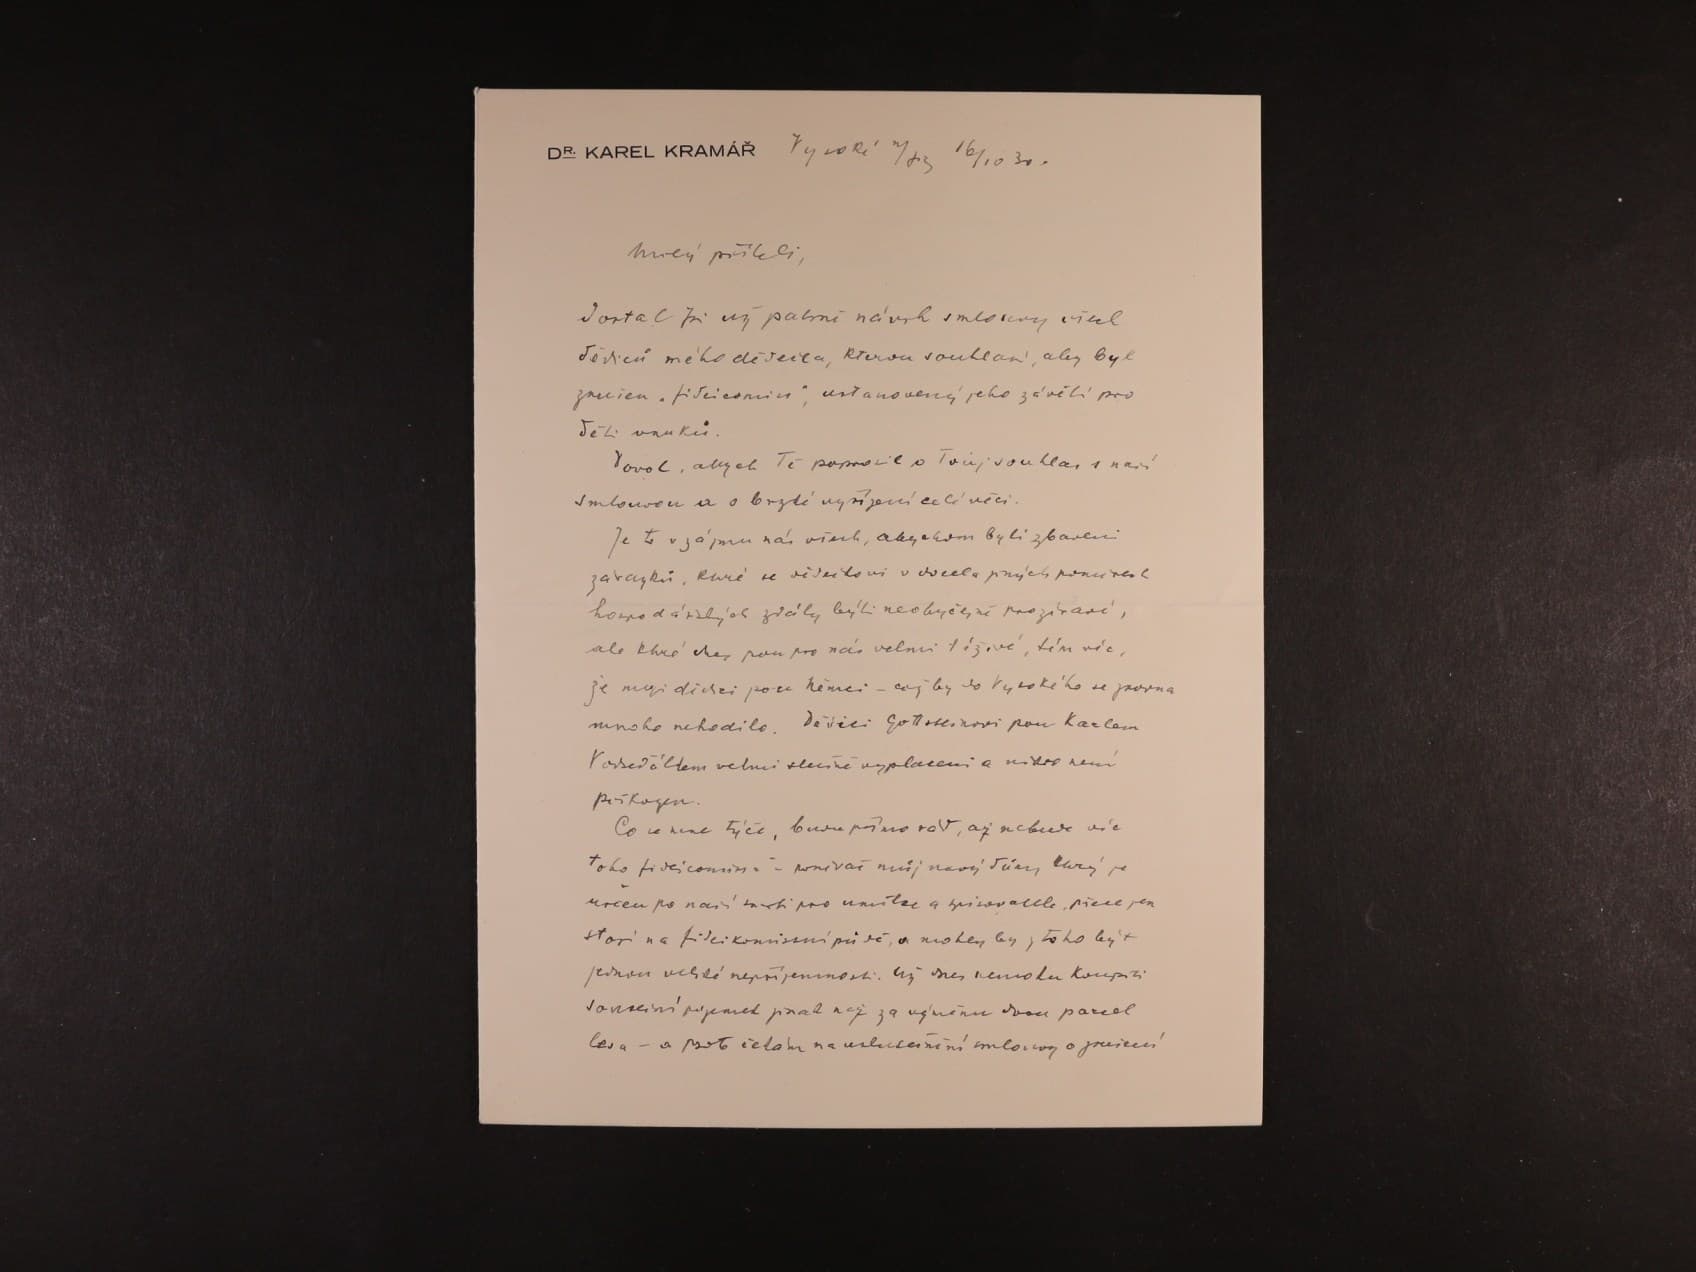 DR. KAREL KRAMÁŘ Vysoké n/Jiz 16/10 30.
Milý příteli,
Dostal jsi už patrně návrh smlouvy všech
dědiců mého dědečka, kterou souhlasí, aby byl
zrušen „fideicomiss“, ustanovený jeho závětí pro
děti vnuků.
Dovol, abych Tě poprosil o Tvůj souhlas s naší
smlouvou a o brzké vyřízení celé věci.
Je to v zájmu nás všech, abychom byli zbaveni
závazků, které se dědečkovi v docela jiných poměrech
hospodářských zdály býti neobyčejně prozíravé,
ale které dnes jsou pro nás velmi tíživé, tím více,
že mezi dědici jsou Němci – což by do Vysokého se zrovna
mnoho nehodilo. Dědici jsou Karlem
velmi slušně vyplaceni a nikdo není
poškozen.
Co se mne týče, budu přímo rád, až nebude více
toho fideicomissu – poněvadž můj nový dům, který je
určen po naší smrti pro umělce a spisovatele, přece jen
stojí na fideikomissní půdě, a mohly by z toho být
jednou veliké nepříjemnosti. Už dnes nemohu koupiti
sousední pozemek jinak než za výměnu dvou parcel
lesa – a proto čekám na uskutečnění smlouvy o zrušení